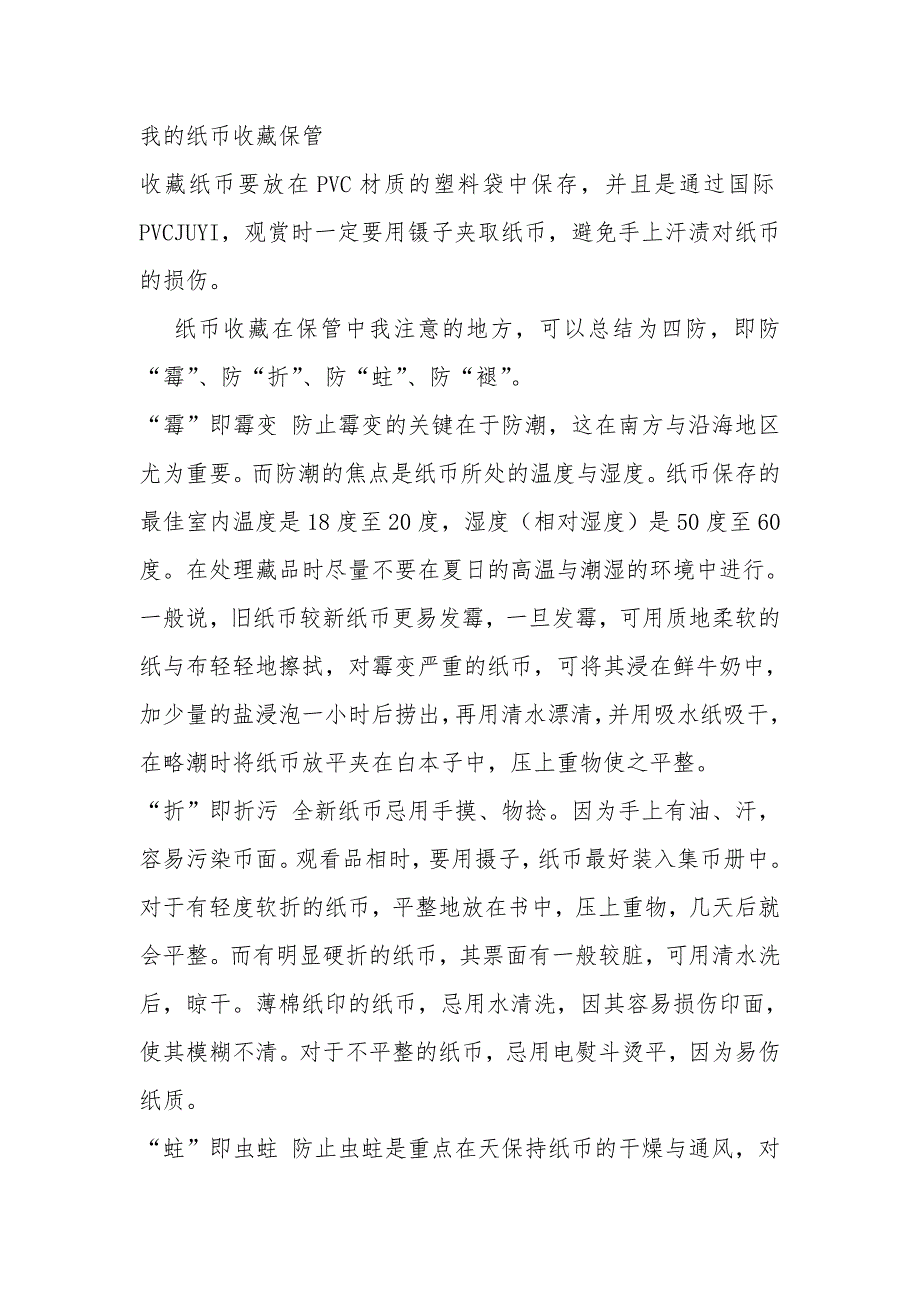 我的纸币收藏保管
收藏纸币要放在 PVC 材质的塑料袋中保存，并且是通过国际
PVCJUYI，观赏时一定要用镊子夹取纸币，避免手上汗渍对纸币
的损伤。
纸币收藏在保管中我注意的地方，可以总结为四防，即防
“霉”、防“折”、防“蛀”、防“褪”。
“霉”即霉变 防止霉变的关键在于防潮，这在南方与沿海地区
尤为重要。而防潮的焦点是纸币所处的温度与湿度。纸币保存的
最佳室内温度是 18 度至 20 度，湿度（相对湿度）是 50 度至 60
度。在处理藏品时尽量不要在夏日的高温与潮湿的环境中进行。
一般说，旧纸币较新纸币更易发霉，一旦发霉，可用质地柔软的
纸与布轻轻地擦拭，对霉变严重的纸币，可将其浸在鲜牛奶中，
加少量的盐浸泡一小时后捞出，再用清水漂清，并用吸水纸吸干，
在略潮时将纸币放平夹在白本子中，压上重物使之平整。
“折”即折污 全新纸币忌用手摸、物捻。因为手上有油、汗，
容易污染币面。观看品相时，要用摄子，纸币最好装入集币册中。
对于有轻度软折的纸币，平整地放在书中，压上重物，几天后就
会平整。而有明显硬折的纸币，其票面有一般较脏，可用清水洗
后，晾干。薄棉纸印的纸币，忌用水清洗，因其容易损伤印面，
使其模糊不清。对于不平整的纸币，忌用电熨斗烫平，因为易伤
纸质。
“蛀”即虫蛀 防止虫蛀是重点在天保持纸币的干燥与通风，对